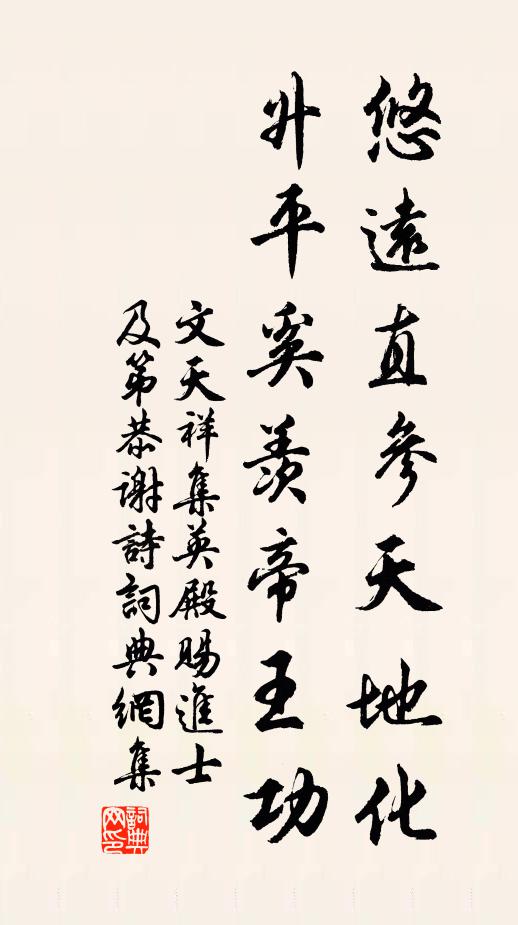 悠遠直參天地化
升平奚羨帝王功
文天祥集英殿賜進士
及第恭謝詩詞典網集
詞典
网印